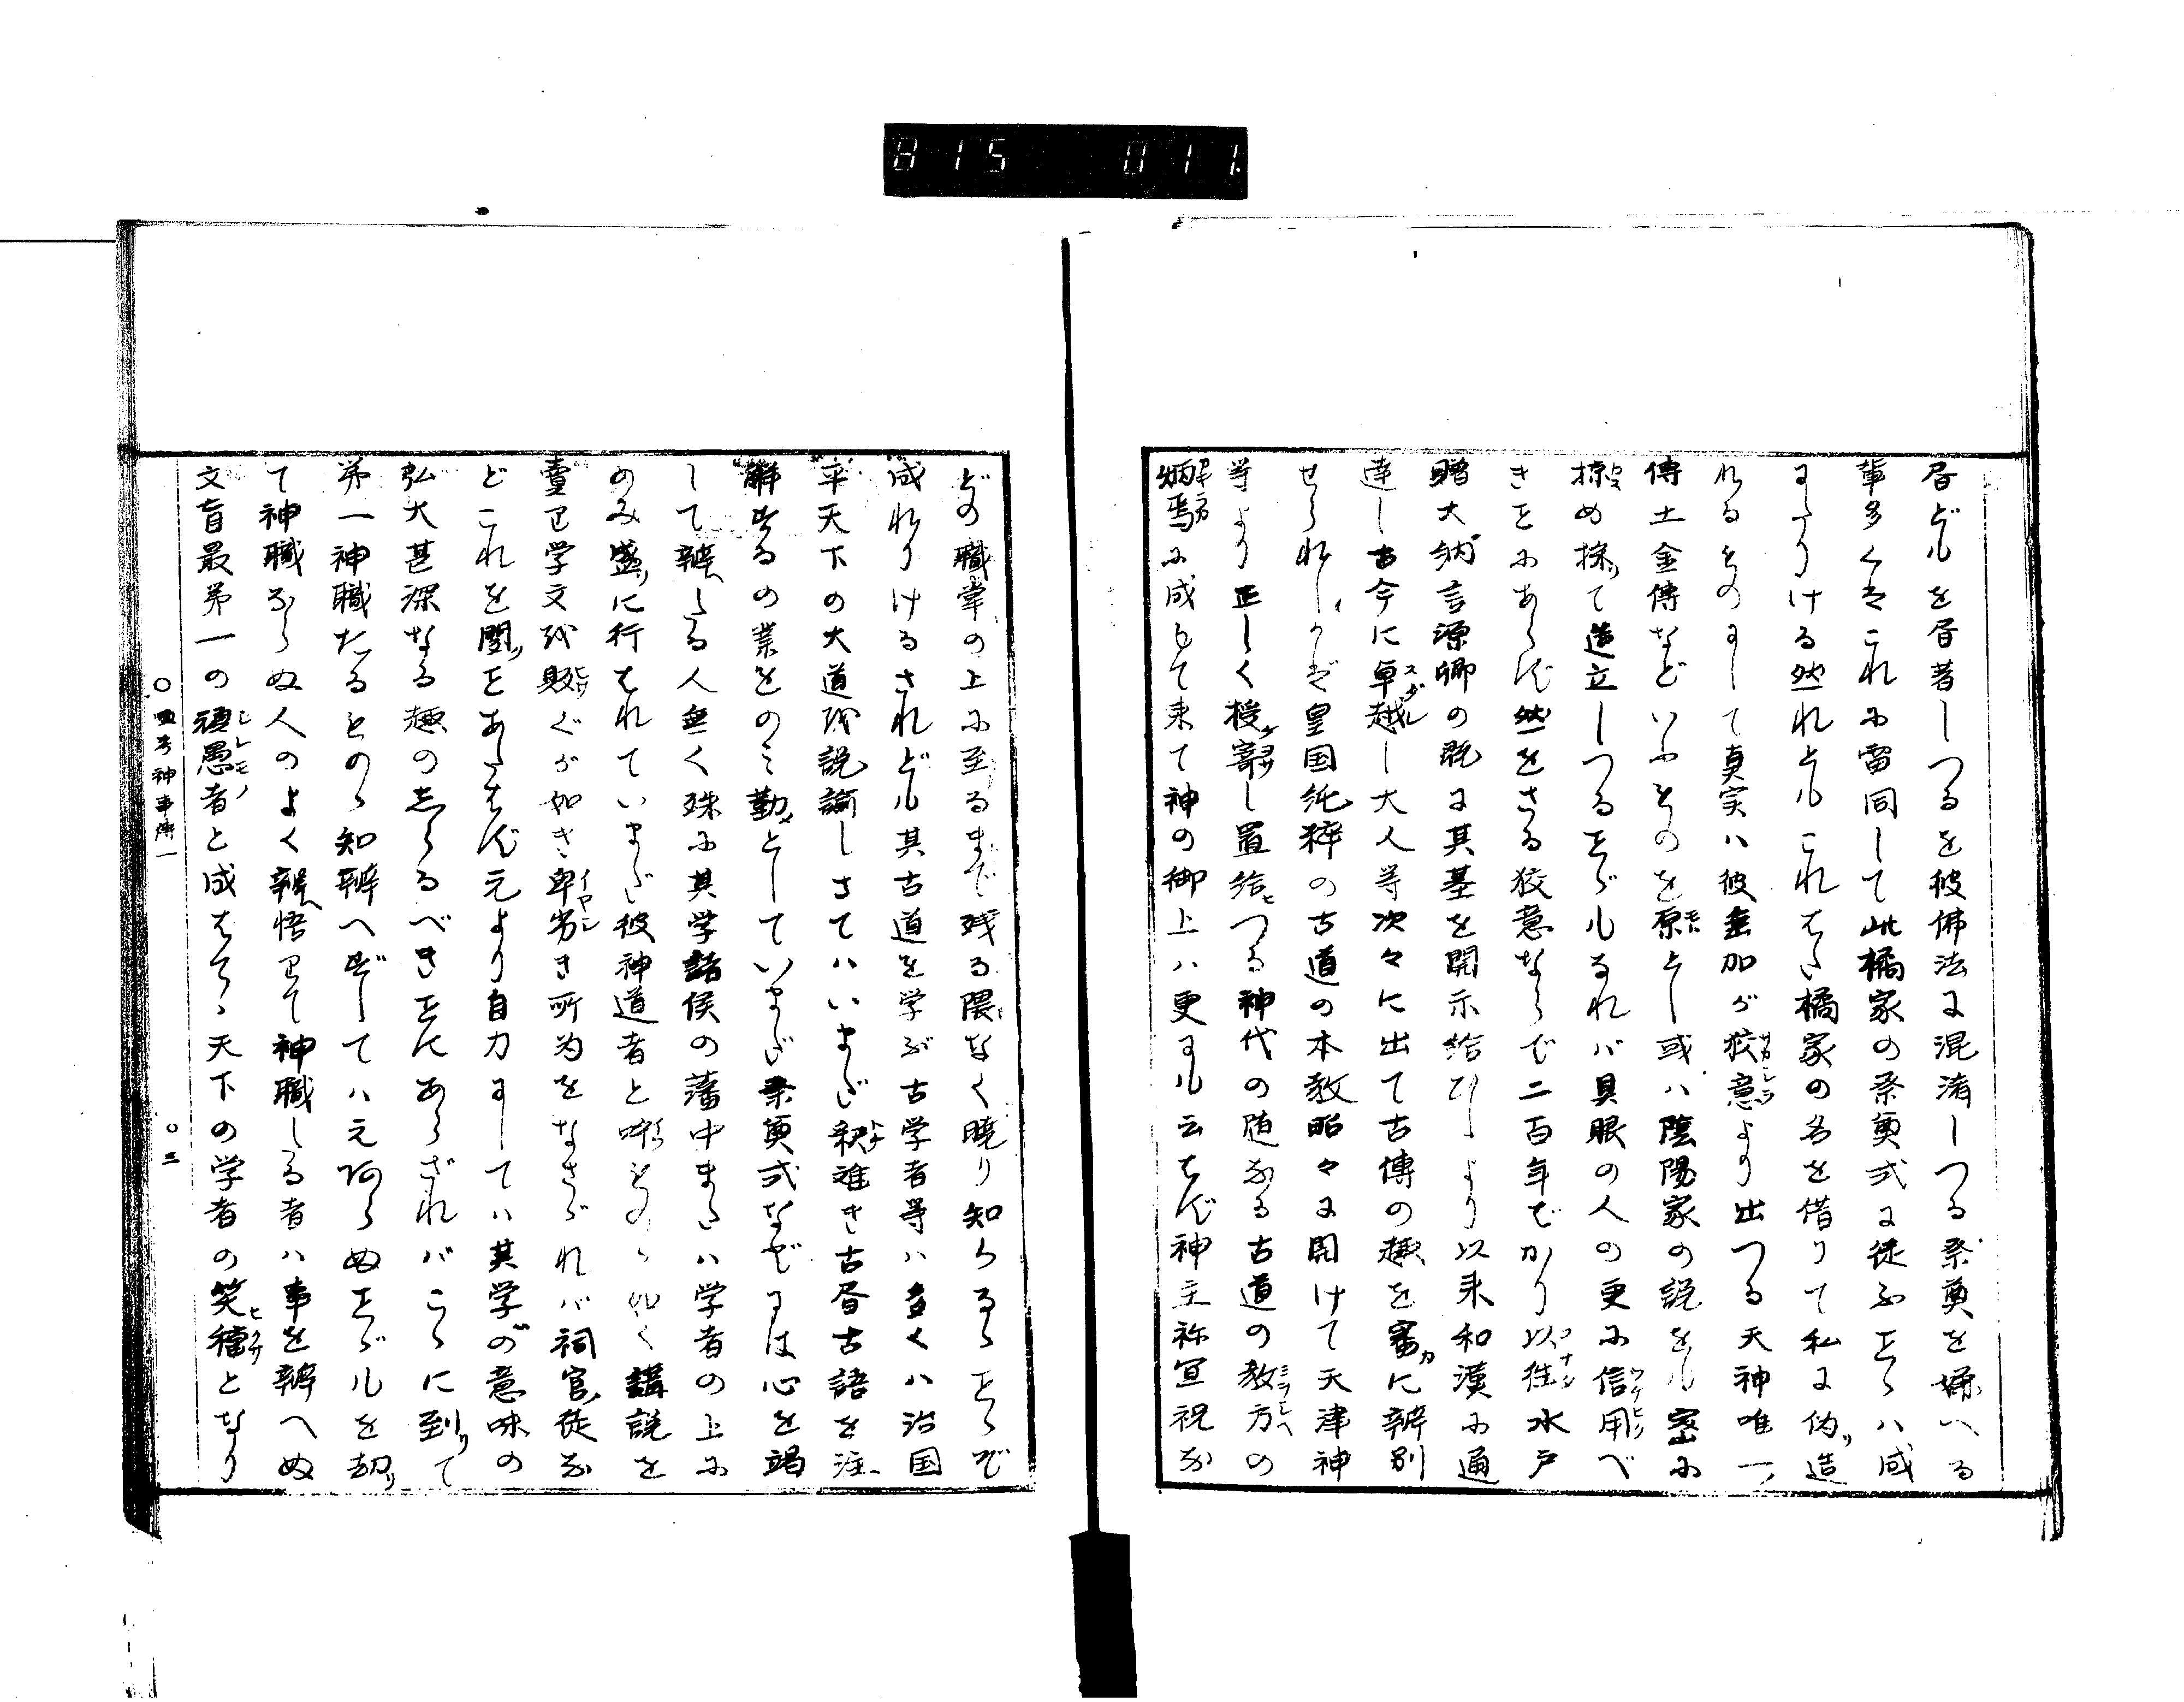 815 011.
昏どもを昏昔しつるを彼佛法に混淆しつる祭奠を嫌へる
輩多くはこれに雷同して此橘家の祭奠式に従ふことゝハ成
にたりける然れどもこれはた橘家の名を借りて私に偽り造
れるものにして真実ハ彼垂加が狡意より出つる天神唯一
傳土金傳などいふものを原とし或ハ陰陽家の説をも密に
掠め採て造立しつることどもなれバ具眼の人の更に信用べ
きことにあらず然ばさる狡意ならで二百年ばかり以往水戸
贈大納言源卿の既に其基を開示給ひしより以来和漢に通
達し古今に卓越し大人等次々に出て古傳の趣を審に辨別
せられしかば皇国純粹の古道の本教昭々に開けて天津神
等より正しく授寄し置給つる神代の随なる古道の教方の
炳焉に成もて来て神の御上ハ更にも云はず神主祢宜祝な
どの職掌の上に至るまで残る隈なく暁り知らるゝことゝぞ
成れりけるされども其古道を学ぶ古学者等ハ多くハ治国
平天下の大道を説論しさてハいまだ釈難き古昏古語を注
解するの業をのミ勤としていまだ祭奠式などには心を竭
して辨たる人無く殊に其学諸侯の藩中またハ学者の上に
のみ盛に行はれていまだ彼神道者と唱ものゝ如く講説を
賣日学文を販ぐが如き卑劣き所為をなさゞれバ祠官徒な
どこれを聞ことあたはず元より自力にしてハ其学の意味の
弘大甚深なる趣の志らるべきことにあらざればこゝに到りて
第一神職たるものゝ知辨へずしてハえあらぬことどもを却
て神職ならぬ人のよく辨へ悟りて神職しる者ハ事を辨へぬ
文盲最第一の頑愚者と成はてゝ天下の学者の笑種となり
神事傳一
○三